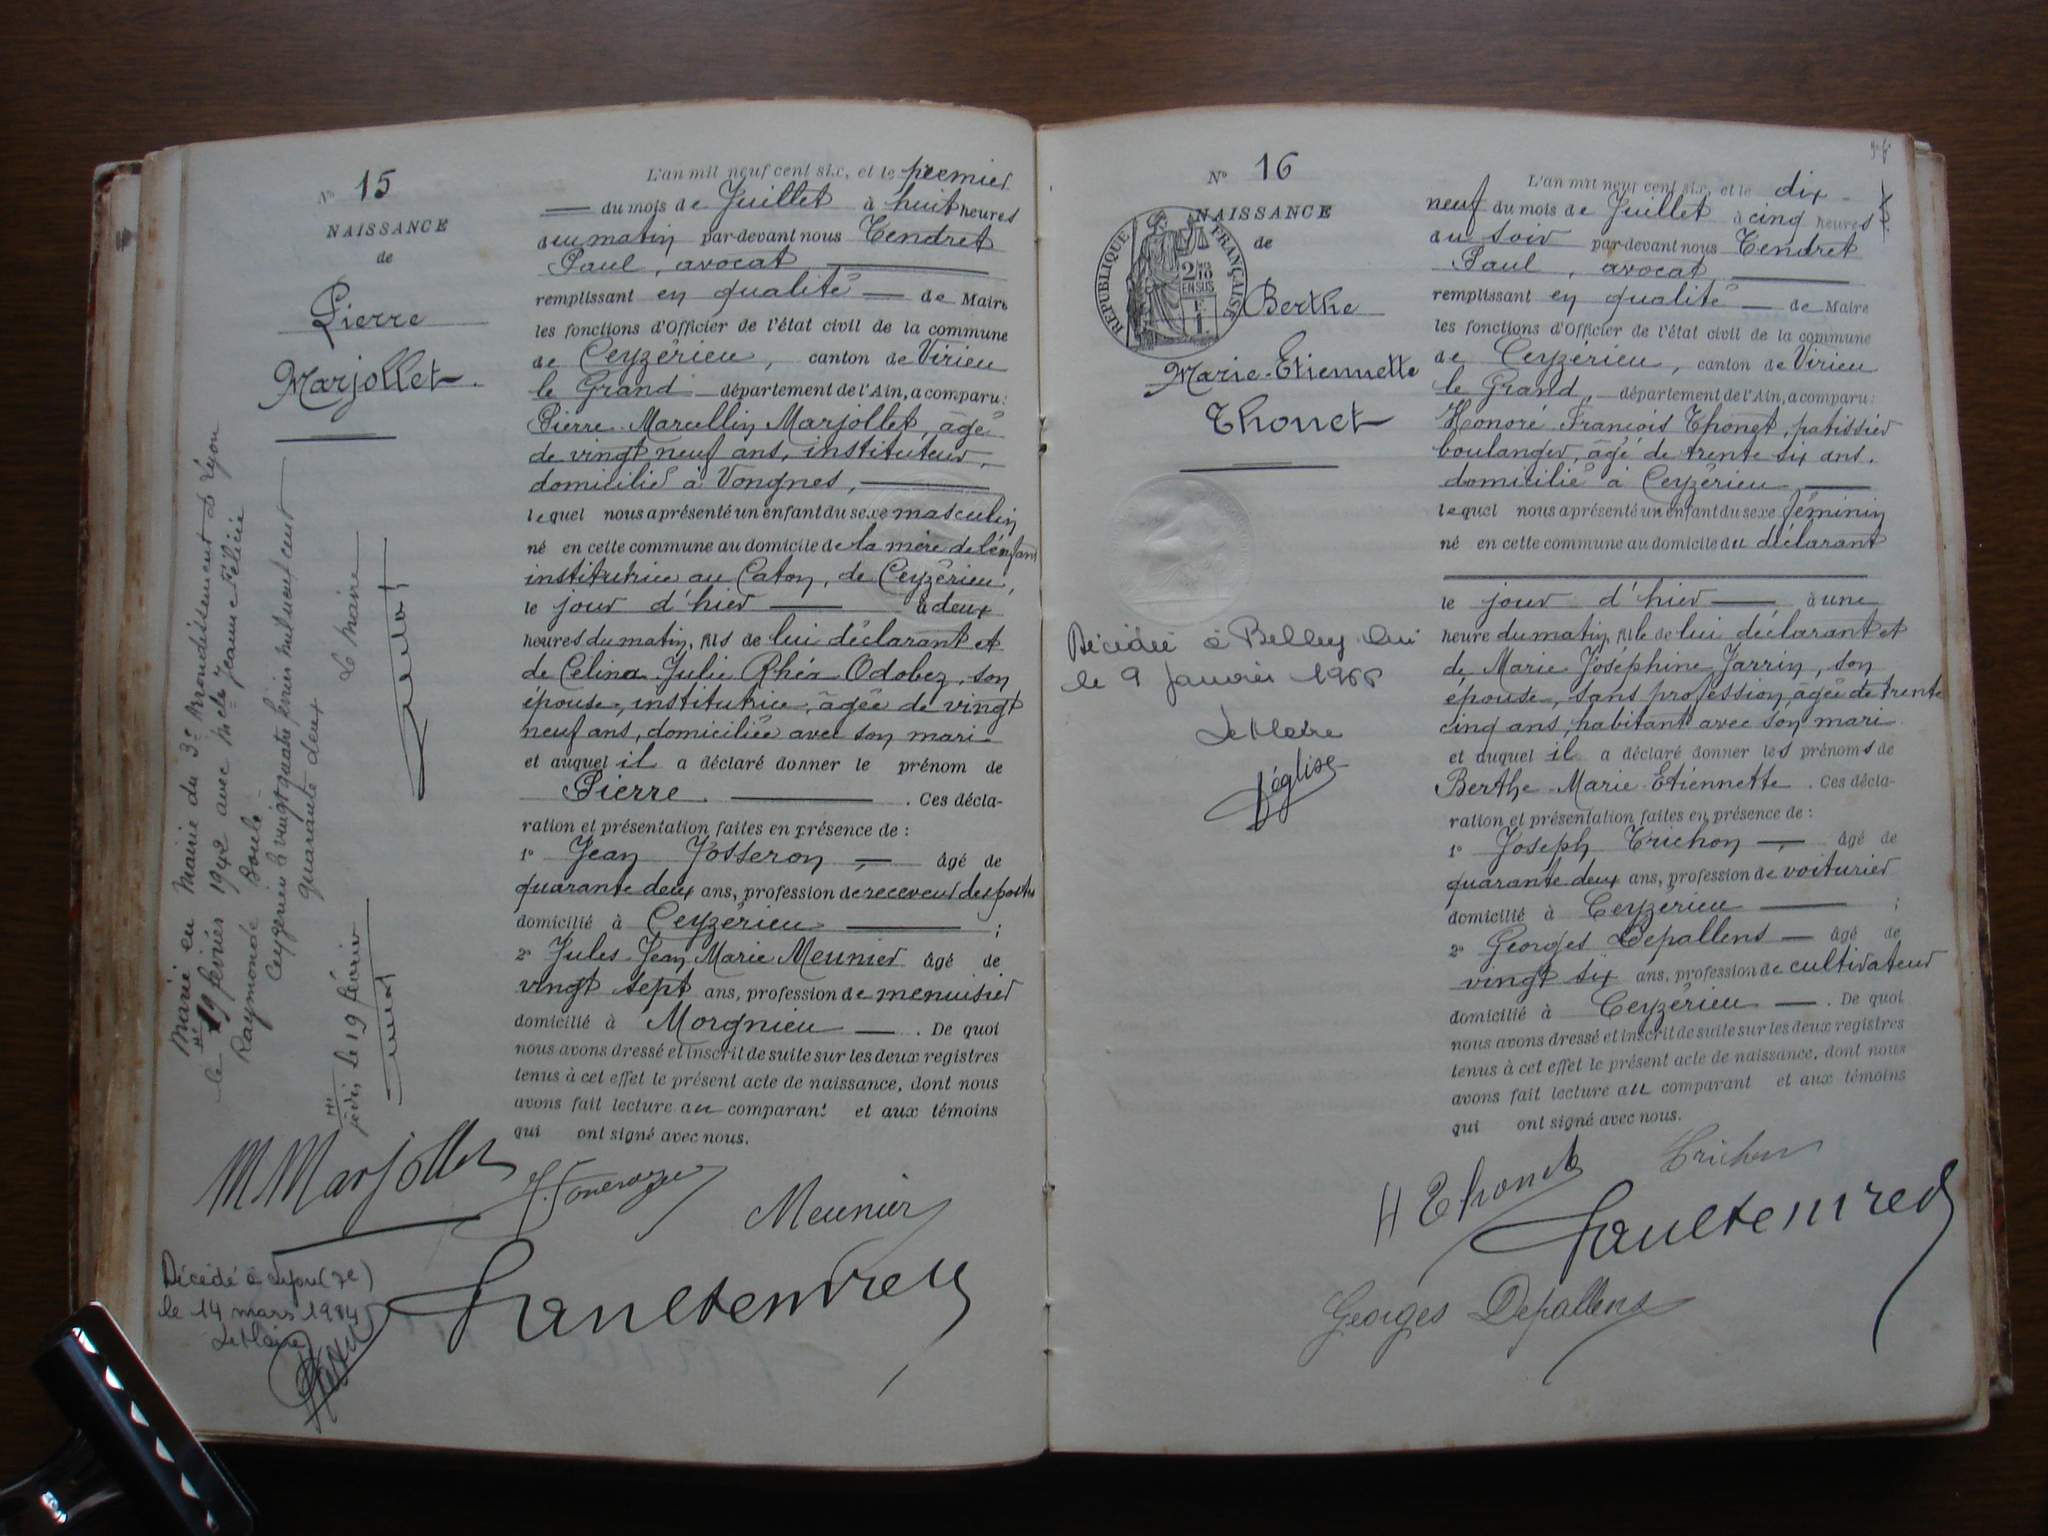 N° 15
NAISSANCE
de
Pierre
Marjollet
L'an mil neuf cent six, et le premier
du mois de Juillet à huit heures
du matin par-devant nous Tendret
Paul, avocat
remplissant en qualité de Maire
les fonctions d'Officier de l'état civil de la commune
de Ceyzérieu, canton de Virieu
le Grand département de l'Ain, a comparu:
Pierre Marcellin Marjollet, âgé
de vingt neuf ans, instituteur,
domicilié à Vongnes,
lequel nous a présenté un enfant du sexe masculin
né en cette commune au domicile de la mère de l'enfant
institutrice au Caton, de Ceyzérieu,
le jour d'hier à deux
heures du matin, fils de lui déclarant et
de Celina Julie Rhéa Odobez, son
épouse, institutrice, âgée de vingt
neuf ans, domiciliée avec son mari
et auquel il a déclaré donner le prénom de
Pierre. Ces décla-
ration et présentation faites en présence de :
1° Jean Josseron, âgé de
quarante deux ans, profession de receveur des postes
domicilié à Ceyzérieu ;
2° Jules Jean Marie Meunier âgé de
vingt sept ans, profession de menuisier
domicilié à Morgnieu. De quoi
nous avons dressé et inscrit de suite sur les deux registres
tenus à cet effet le présent acte de naissance, dont nous
avons fait lecture au comparant et aux témoins
qui ont signé avec nous.
Marié en Mairie du 3e Arrondissement de Lyon
le 19 février 1942 avec Melle Jeanne Félicie
Raymonde
Ceyzérieu le vingt quatre février mil neuf cent
quarante deux Le Maire
le 19 février
M Marjollet
Meunier
Décédé à Lyon (7e)
le 14 mars 1984
Le Maire
N° 16
NAISSANCE
de
RÉPUBLIQUE FRANÇAISE
Berthe
Marie-Etiennette
Thonet
L'an mil neuf cent six, et le dix
neuf du mois de Juillet à cinq heures
du soir par-devant nous Tendret
Paul, avocat
remplissant en qualité de Maire
les fonctions d'Officier de l'état civil de la commune
de Ceyzérieu, canton de Virieu
le Grand, département de l'Ain, a comparu:
Honoré François Thonet, patissier
boulanger, âgé de trente six ans.
domicilié à Ceyzérieu
lequel nous a présenté un enfant du sexe féminin
né en cette commune au domicile du déclarant
le jour d'hier à une
heure du matin, fille de lui déclarant et
de Marie Joséphine Jarrin, son
épouse, sans profession, âgée de trente
cinq ans, habitant avec son mari
et auquel il a déclaré donner les prénoms de
Berthe Marie Etiennette. Ces décla-
ration et présentation faites en présence de :
1° Joseph Trichon, âgé de
quarante deux ans, profession de voiturier
domicilié à Ceyzérieu ;
2° Georges Depallens âgé de
vingt six ans, profession de cultivateur
domicilié à Ceyzérieu. De quoi
nous avons dressé et inscrit de suite sur les deux registres
tenus à cet effet le présent acte de naissance, dont nous
avons fait lecture au comparant et aux témoins
qui ont signé avec nous.
Décédée à Belley Ain
le 9 Janvier
Le Maire
Léglise
H Thonet
Trichon
Georges Depallens